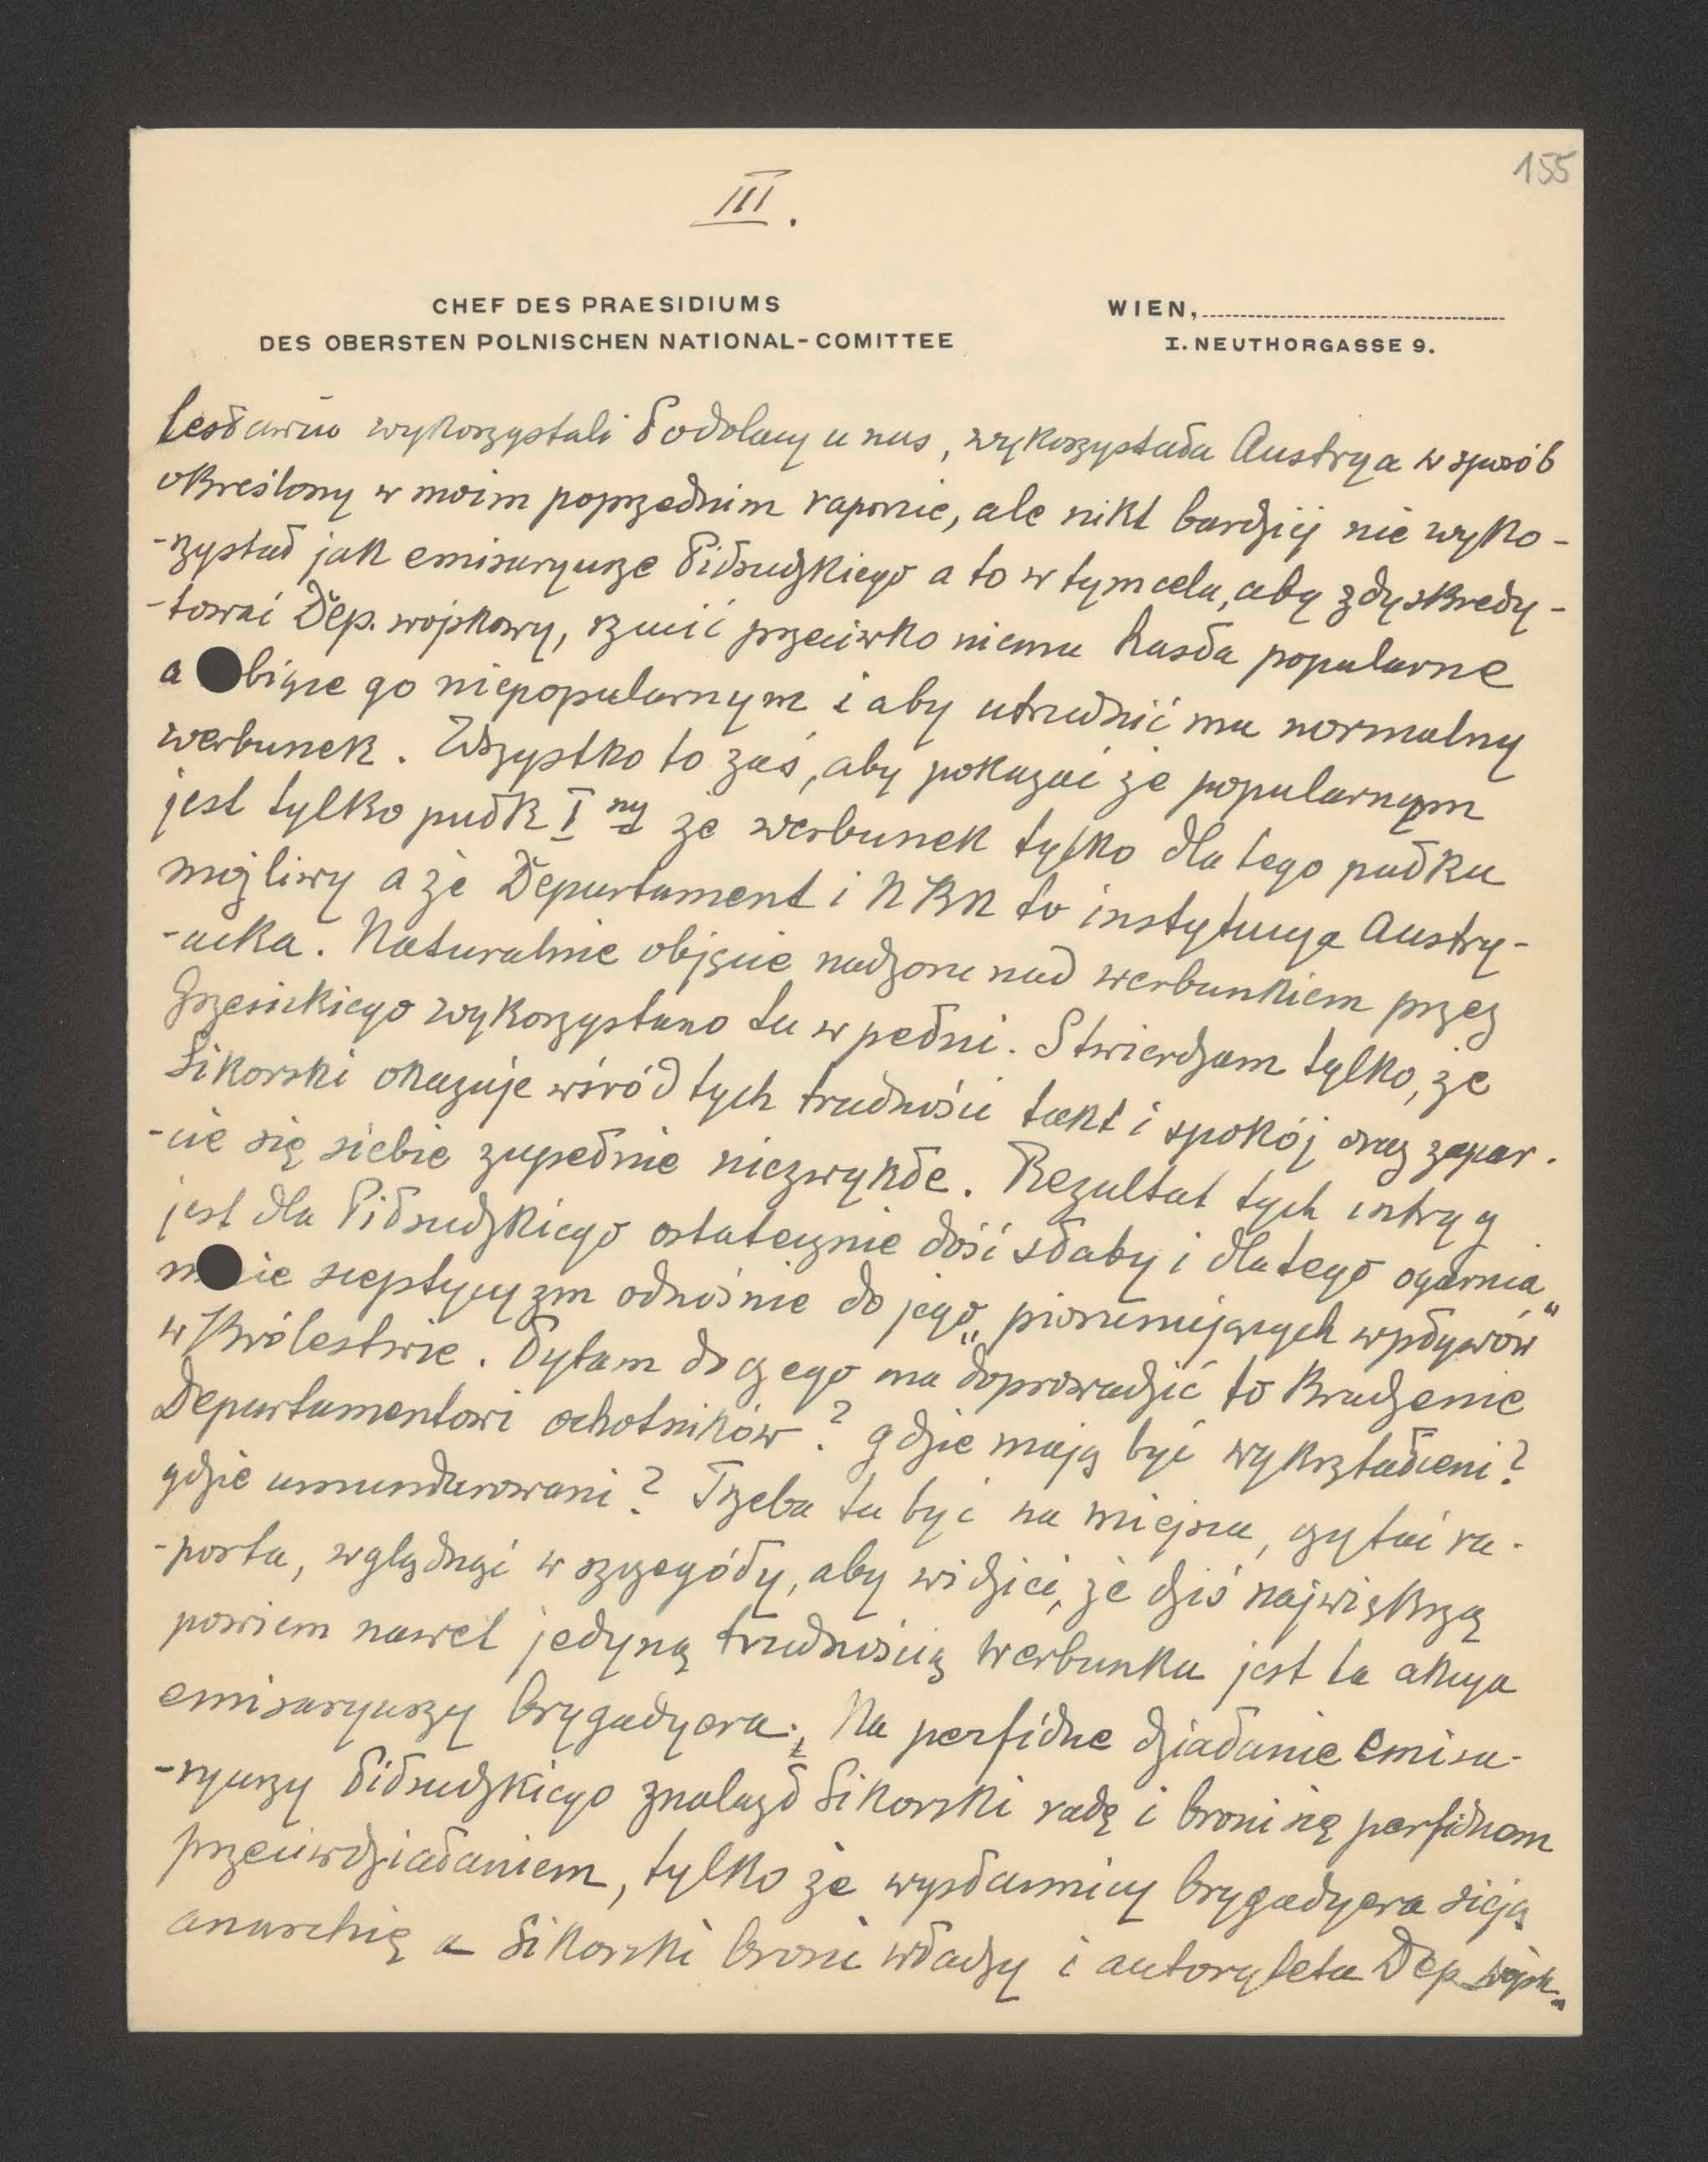 155
III.
CHEF DES PRAESIDIUMS
DES OBERSTEN POLNISCHEN NATIONAL-COMITTEE
WIEN,
I. NEUTHORGASSE 9.
wykorzystali Podolacy u nas, wykorzystała Austrya w sposób
określony w moim poprzednim raporcie, ale nikt bardziej nie wyko-
-rzystał jak emisaryusze Piłsudzkiego a to w tym celu, aby zdyskredy-
-tować Dep. wojskowy, rzucić przeciwko niemu hasła popularne
a biące go niepopularnym i aby utrudnić mu normalny
werbunek. Wszystko to zaś, aby pokazać że popularnym
jest tylko pułk I ny że werbunek tylko dla tego pułku
możliwy a że Departament i NKN to instytucya Austry-
-acka. Naturalnie objęcie nadzoru nad werbunkiem przez
Grzesickiego wykorzystano tu w pełni. Stwierdzam tylko, że
Sikorski okazuje wśród tych trudności takt i spokój oraz zapar-
-cie się siebie zupełnie niezwykłe. Rezultat tych intryg
jest dla Piłsudzkiego ostatecznie dość słaby i dlatego ogarnia
mnie sceptycyzm odnośnie do jego „piorunujących wpływów"
w Królestwie. Pytam do czego ma doprowadzić to kradzenie
Departamentowi ochotników? gdzie mają być wykształceni?
gdzie umundurowani? Trzeba tu być na miejscu, czytać ra-
-porta, wglądnąć w szczegóły, aby widzieć, że dziś największą
powiem nawet jedyną trudnością werbunku jest ta akcya
emisaryuszy brygadyera. Na perfidne działanie emisa-
-ryuszy Piłsudzkiego znalazł Sikorski radę i broni się perfidnem
przeciwdziałaniem, tylko że wysłannicy brygadyera sieją
anarchię a Sikorski broni władzy i autorytetu Dep. wojsk.